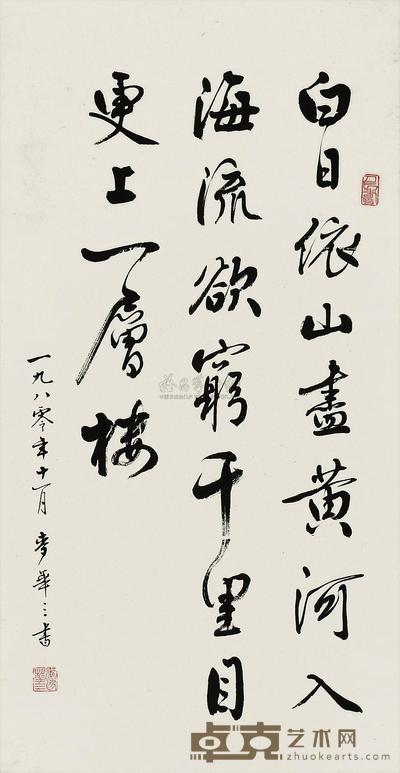 白日依山盡黃河入
海流欲窮千里目
更上一層樓
一九八零年十一月 麥華三書
卓克艺术网
zhuokearts.com